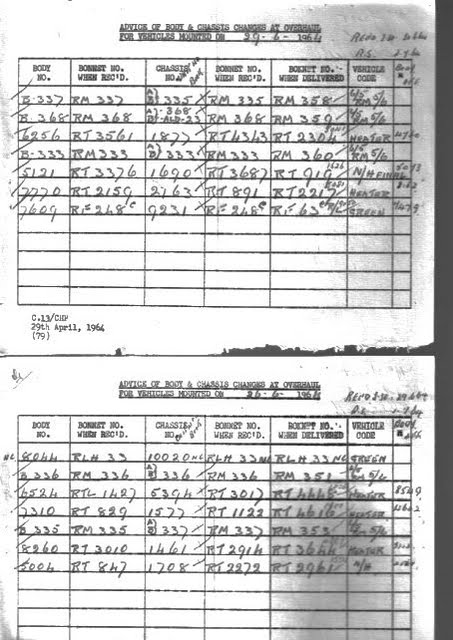 ADVICE OF BODY & CHASSIS CHANGES AT OVERHAUL
FOR VEHICLES MOUNTED ON 29-6-1964
BODY NO. BONNET NO. WHEN REC'D. CHASSIS NO. BONNET NO. WHEN REC'D. BONNET NO. WHEN DELIVERED VEHICLE CODE
B-337 RM 337 A) B) 335 RM 335 RM 358 RM 5/6
B.368 RM 368 A)-368 RM 368 RM 359 RM 5/6
6256 RT 3561 1877 RT 4343 RT 2304 HEATER
B-333 RM 333 A) B) 333 RM 333 RM 360 RM 5/6
5121 RT 3376 1690 RT 3687 RT 919 N/H FINAL
7770 RT 2159 2763 RT 891 RT 2217 HEATER
7609 RF 248 9231 RF 248 RF 63 GREEN
C.13/CHP
29th April, 1964
(79)
ADVICE OF BODY & CHASSIS CHANGES AT OVERHAUL
FOR VEHICLES MOUNTED ON 26-6-1964
BODY NO. BONNET NO. WHEN REC'D. CHASSIS NO. BONNET NO. WHEN REC'D. BONNET NO. WHEN DELIVERED VEHICLE CODE
NC 8044 RLH 33 10020 NC RLH 33 NC RLH 33 NC GREEN
B.336 RM 336 A) B) 336 RM 336 RM 351 RM 5/6
6524 RTL 1427 5394 RT 3017 RT 4448 HEATER
7310 RT 829 1577 RT 1122 RT 4616 HEATER
B.335 RM 335 A) B) 337 RM 337 RM 353 RM 5/6
8260 RT 3010 1461 RT 2914 RT 3644 HEATER
5004 RT 847 1708 RT 2272 RT 2961 N/H